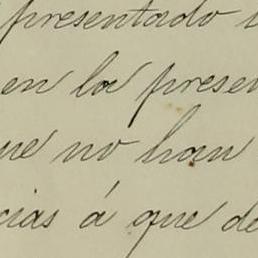 presentado
en la presen
que no han
cias á que de